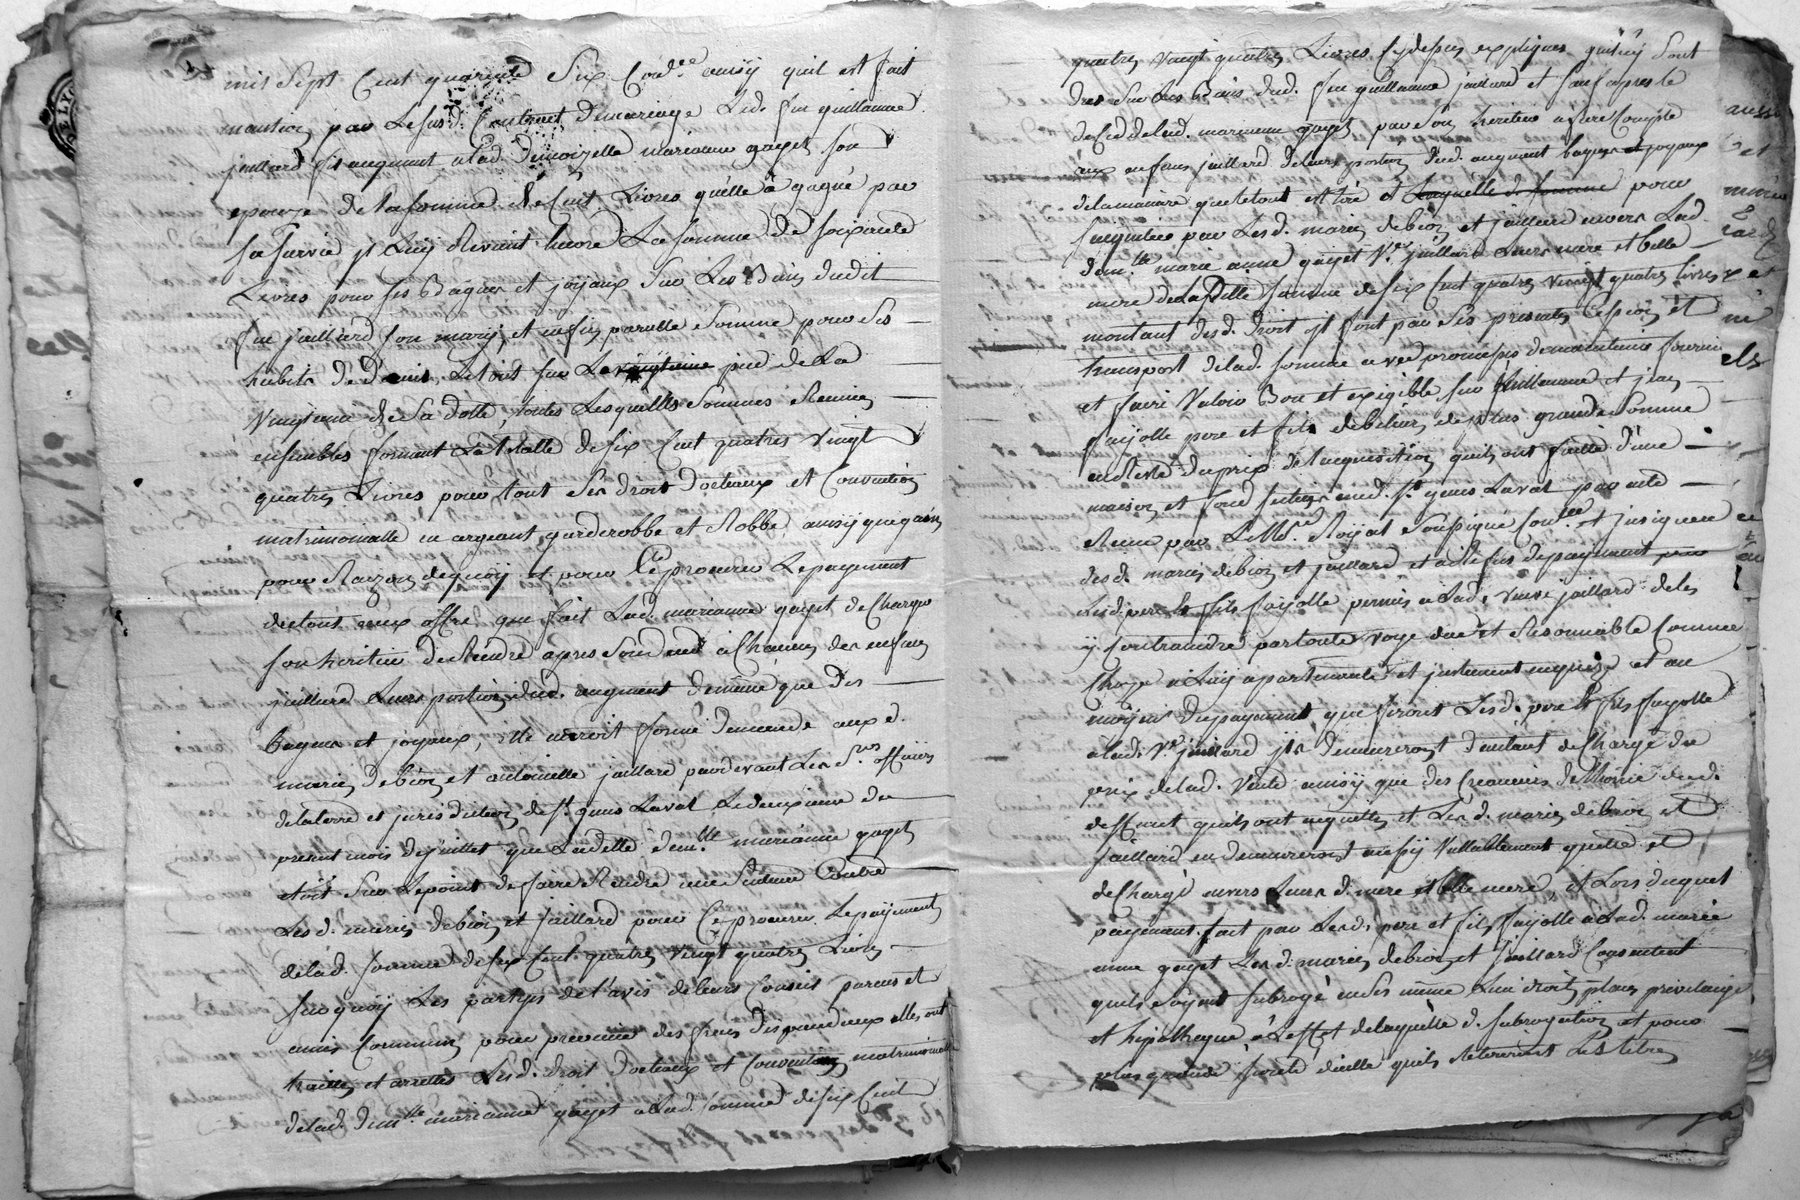 mil Sept Cent quarante Six Con.ée ainsy quil est fait
mention par Le susd. Contract de mariage Led. feu guillaume
jaillard fit augment a Lad. demoizelle marianne gayet son
epouze de la somme de Cent Livres quelle à gagné par
sa survie jl Luy Revient encore La somme de soixante
Livres pour ses Bagues et joyaux sur Les Biens dudit
feu jaillard son mary, et enfin pareille Somme pour Ses
habits de deuil, Le tout sur Le vingtieme pied de La
Vingtaine de Sa dotte, toutes Lesquelles Sommes Reunies
ensembles forment La totalle de six Cent quatres vingt
quatres Livres pour tout Ses droit dotteaux et Convention
matrimonialle en argeant garderobbe et Robbe ainsy que gain
pour Raizon de quoy et pour Ce procurer Le payement
du tout aux offre que fait Lad. marianne gayet de Charger
son heritier de Rendre apres Son deced à Chacun des enfans
jaillard Leurs portion dud. augment de même que des
bagues et joyaux, elle auroit formé demande aux d.
mariés debior et antoinette jaillard pardevant Les S.rs officiers
de la terre et jurisdiction de S.t genis Laval Le deuxieme du
present mois de juillet que Ladette dem.lle marianne gayet
etoit Sur Le point de faire Rendre une Sentence Contre
Les d. mariés debior et jaillard pour Ce procurer Le payement
de lad. somme de six Cent quatres vingt quatres Livres
surquoy Les partyes de l'avis de leurs Conseis parens et
amis Communs pour prevenir des frais dispendieux elles ont
traittés et arrettés Lesd. droit dotteaux et Convention matrimonialle
de lad. dem.lle marianne gayet a Lad. Somme de six Cent
quatres vingt quatres Livres Cy dessus expliques quil luy Sont
dues Sur Les Biens dud. feu guillaume jaillard et sauf apres le
deced de lad. marianne gayet par Son heritier a faire Compte
aux enfans jaillard de leurs portion dud. augment bagues et joyaux
de la maniere que le tout est tiré et Laquelle de Somme pour
s'acquitter par Lesd. mariés debior et jaillard envers Lad.
dem.lle marie anne gayet V.ve jaillard Leurs mere et belle
mere de Laditte Somme de six Cent quatres vingt quatres Livres
montant desd. droit jls font par Ses presentes Cession et
transport de lad. somme avec promesses de maintenir fournir
et faire Valoir Bon et exigible sur guillaume et jean
fayolle pere et fils debiteurs de plus grande Somme
en Reste du prix de l'acquisition quils ont faitte d'une
maison et fond scitués aud. S.t genis Laval par acte
Receu par Le N.re Royal Soussigné Con.lle et jnsignué
desd. mariés debior et jaillard et a deffus de payement par
Lesd. pere et fils fayolle permis a Lad. veuve jaillard de les
y Contraindre par toute voye due et Resonnable Comme
Choze a Luy apartenante et justement acquise et au
moyens du payement que feront Lesd. pere et fils fayolle
a lad. V.ve jaillard jls demeureront d'autant decharge du
prix de lad. Vente ainsy que des Creanciers de l'hoirie dud.
deffunt quils ont acquittés et Les d. mariés debior et
jaillard en demeureront aussy Vallablement quitte et
decharge envers Leurs d. mere et belle mere, et Lors duquel
payement fait par Lesd. pere et fils fayolle à Lad. marie
anne gayet Les d. mariés debior et jaillard Consentent
quels soyent subrogé en Ses même Lieu droits places previlaige
et hipotheque à L'effet de laquelle d. subrogation et pour
plus grande sureté d'icelle quils Retireront Les titres